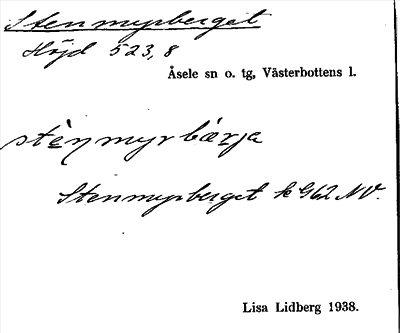 Stenmyrberget
Höjd 523,8
Åsele sn o. tg, Västerbottens l.
stèŋmyrbærja
Stenmyrberget k G62 NV.
Lisa Lidberg 1938.